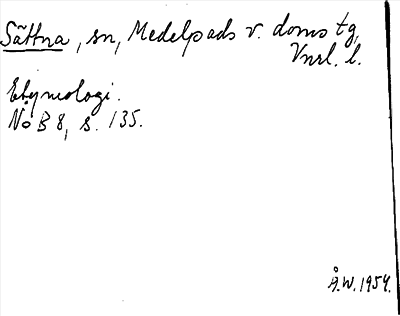 Sättna, sn, Medelpads v. doms tg,
Vnrl. l.
Etymologi.
NoB 8, s. 135.
Å.W. 1954.